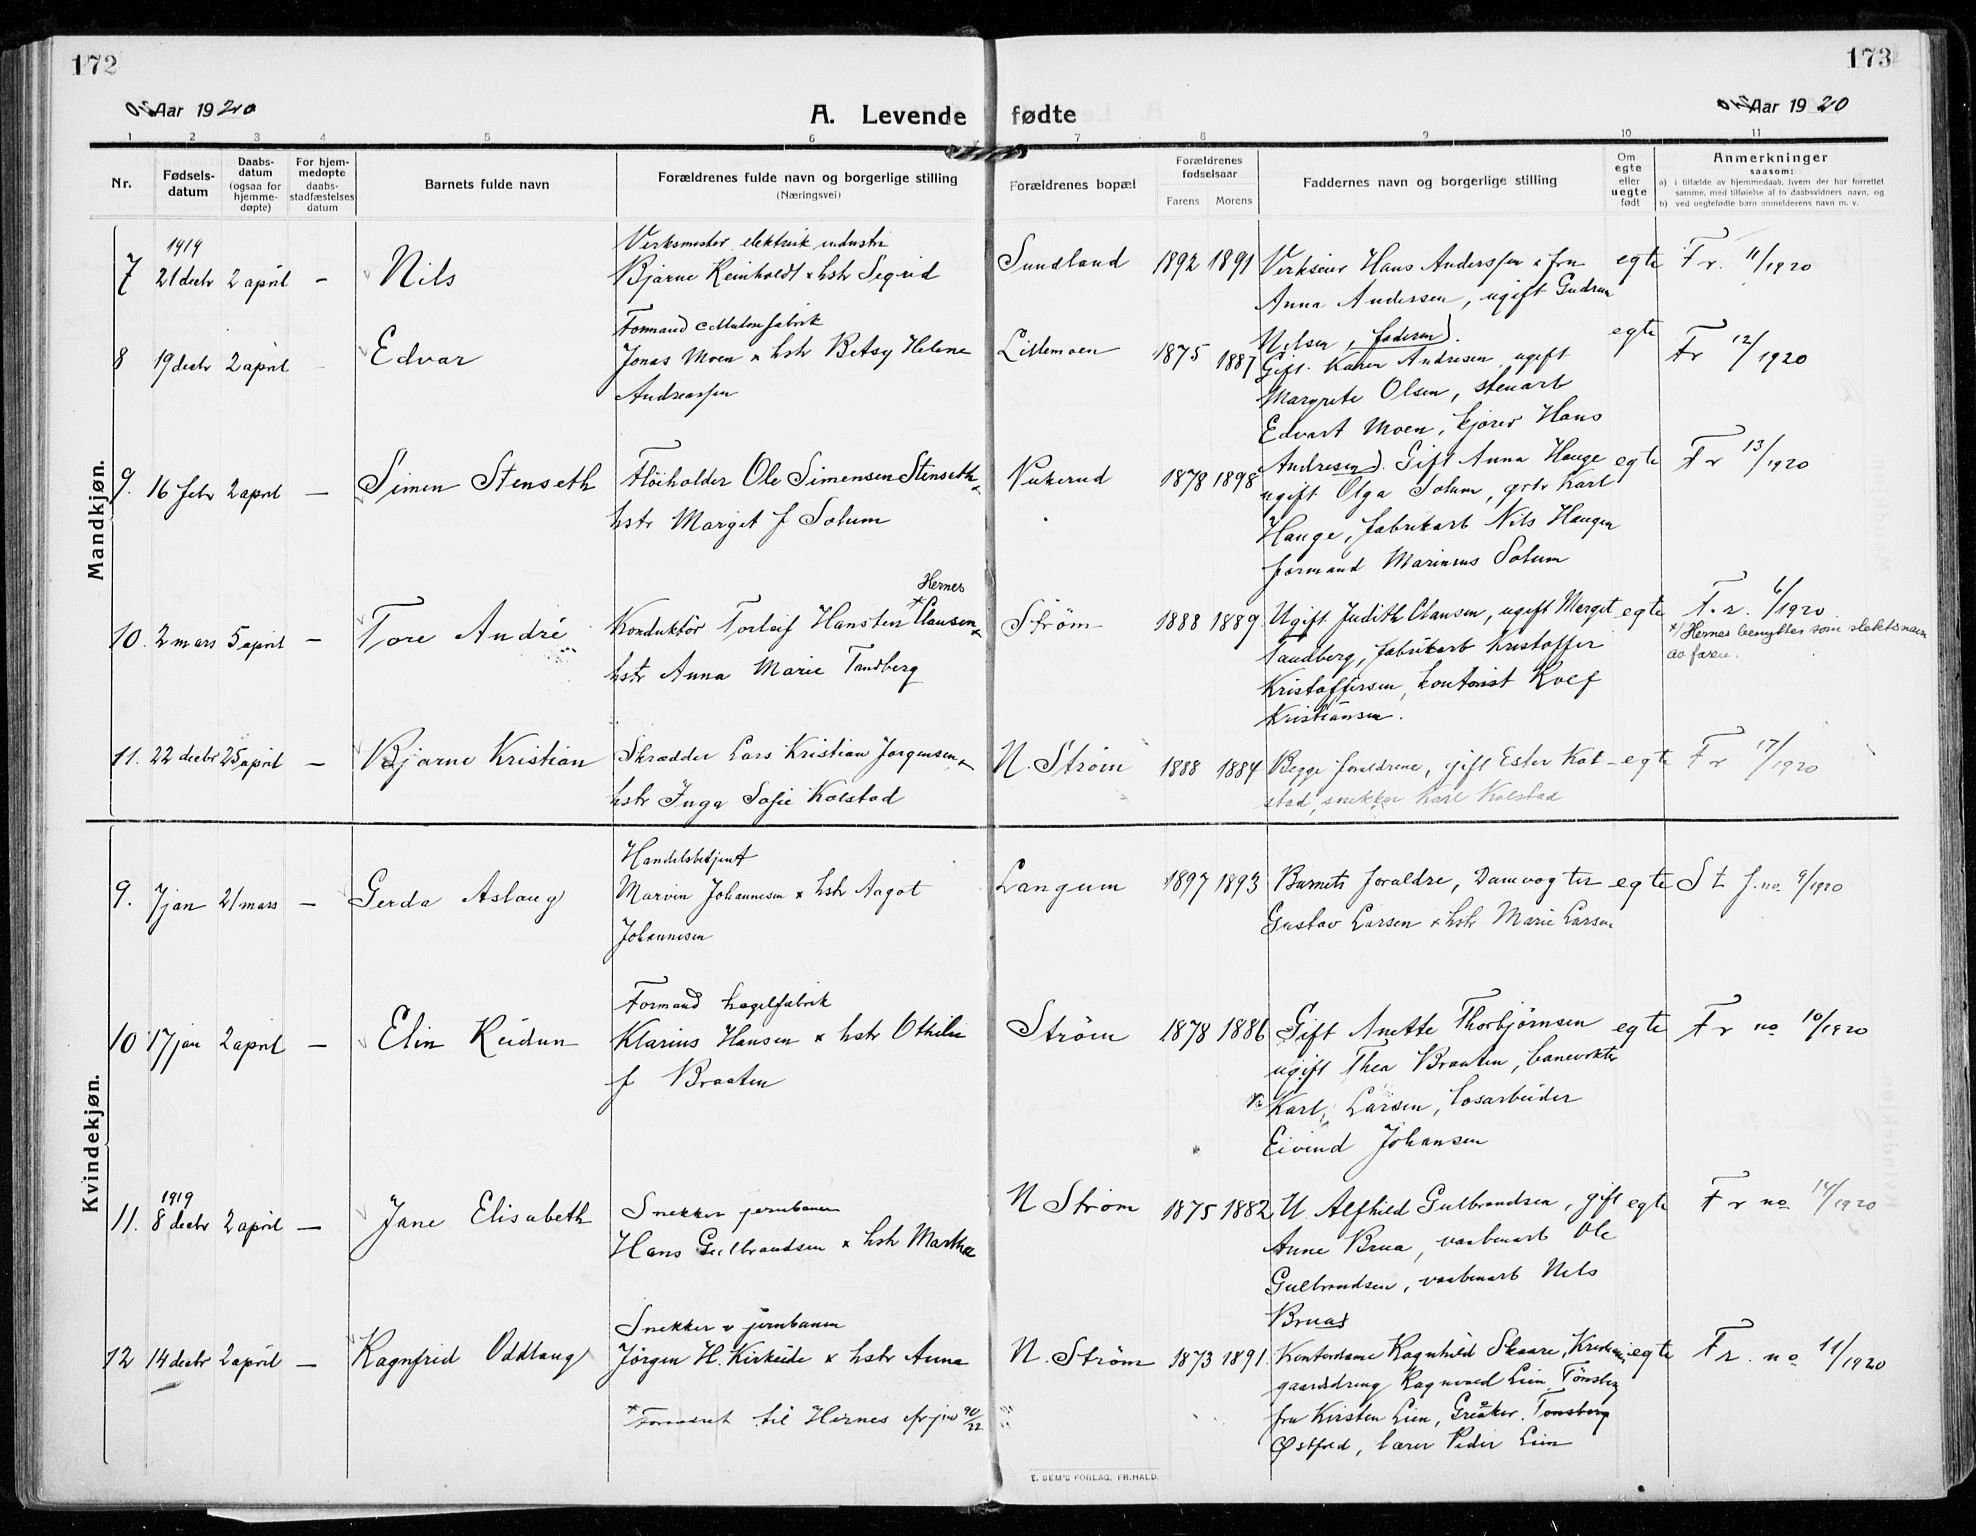 172
173
Aar 1920
A. Levende fødte
Aar 1920
1 2 3 4 5 6 7 8 9 10 11
Nr.
Fødsels-
datum
Daabs-
datum
(ogsaa for
hjemme-
døpte)
For hjem-
medøpte
daabs-
stadfæstelses
datum
Barnets fulde navn
Forældrenes fulde navn og borgerlige stilling
(Næringsvei)
Forældrenes bopæl
Forældrenes
fødselsaar
Farens Morens
Faddernes navn og borgerlige stilling
Om
egte
eller
uegte
født
Anmerkninger
saasom:
a) i tilfælde av hjemmedaab, hvem der har forrettet
samme, med tilføielse af to daabsvidners navn, og
b) ved uegtefødte barn anmelderens navn m. v.
Mandkjøn.
7 1919 21 decbr 2 april – Nils
Verksmester elektrisk industri
Bjarne Reinholdt x hstr Segrid
Sundland 1892 1891
Verkseier Hans Anderssen x fru
Anna Andersen, ugift Gudrun
Nilsen, faderen).
egte Fr. 11/1920
8 19 decbr 2 april – Edvar
Formand cellulosefabrik
Jonas Moen x hstr Betsy Helene
Andreassen
Lillemoen 1875 1887
Gift Karen Andresen, ugift
Margrete Olsen, stenarb
Edvart Moen, kjører Hans
Andresen).
egte Fr 12/1920
9. 16 febr 2 april – Simen Stenseth
Fløiholder Ole Simensen Stenseth x
hstr Marget f Solum
1878 1898
Gift Anna Hauge
ugift Olga Solum, grbr Karl
Hauge, fabrikarb Nils Haugen
formand Marinius Solum
egte Fr 13/1920
10. 2 mars 5 april – Tore André
Hernes
Konduktör Torleif Hansten x Clausen x
hstr Anna Marie Tandberg
Strøm 1888 1889
Ugift Judith Clausen, ugift Merget
Tandberg, fabrikarb Kristoffer
Kristoffersen, kontorist Rolf
Kristiansen.
egte F.r. 6/1920
x) Hernes benyttes som slektsnavn
av faren.
11. 22 decbr 25 april – Bjarne Kristian
Skrædder Lars Kristian Jørgensen x
hstr Inga Sofie Kolstad
N. Strøm 1888 1884
Begge foraldrene, gift Ester Kol-
stad, snekker Karl Kolstad
egte Fr 17/1920
Kvindekjøn.
9. 7 jan 21 mars – Gerda Aslaug
Handelsbetjent
Marvin Johannesen x hstr Aagot
Johannesen
Langum 1897 1893
Barnets foraldre, Damvogter
Gustav Larsen x hstr Marie Larsen
egte St f. no 9/1920
10 17 jan 2 april – Elin Reidun
Formand hagelfabrik
Klarius Hansen x hstr Othilie
f Braaten
Strøm 1878 1886
Gift Anette Thorbjørnsen
ugift Thea Braaten, banevokter
Karl Larsen, losarbeider
Eivind Johansen
egte Fr no 10/1920
11. 1919 8 decbr 2 april – Jane Elisabeth
Snekker jernbanen
Hans Gulbrandsen x hstr Martha
N Strøm 1875 1882
U. Alfhild Gulbrandsen, gift
Anne Brua, vaabenarb Ole
Gulbrandsen, vaabenarb Nils
Bruas
egte Fr no 14/1920
12 14 decbr 2 april – Ragnfrid Oddlaug
Snekker v jernbanen
Jörgen H. Kirkeide x hstr Anna
N. Strøm 1873 1891
Kontordame Ragnhild Skaare, Kristiania
gaardsdreng Ragnvald Lien, Tønsberg
fru Kirsten Lien, Greaker, Tønsberg
Østfold, lærer Peder Lien
egte Fr. no 11/1920
x Forandret til Hernes
E. SEM'S FORLAG, FR.HALD.